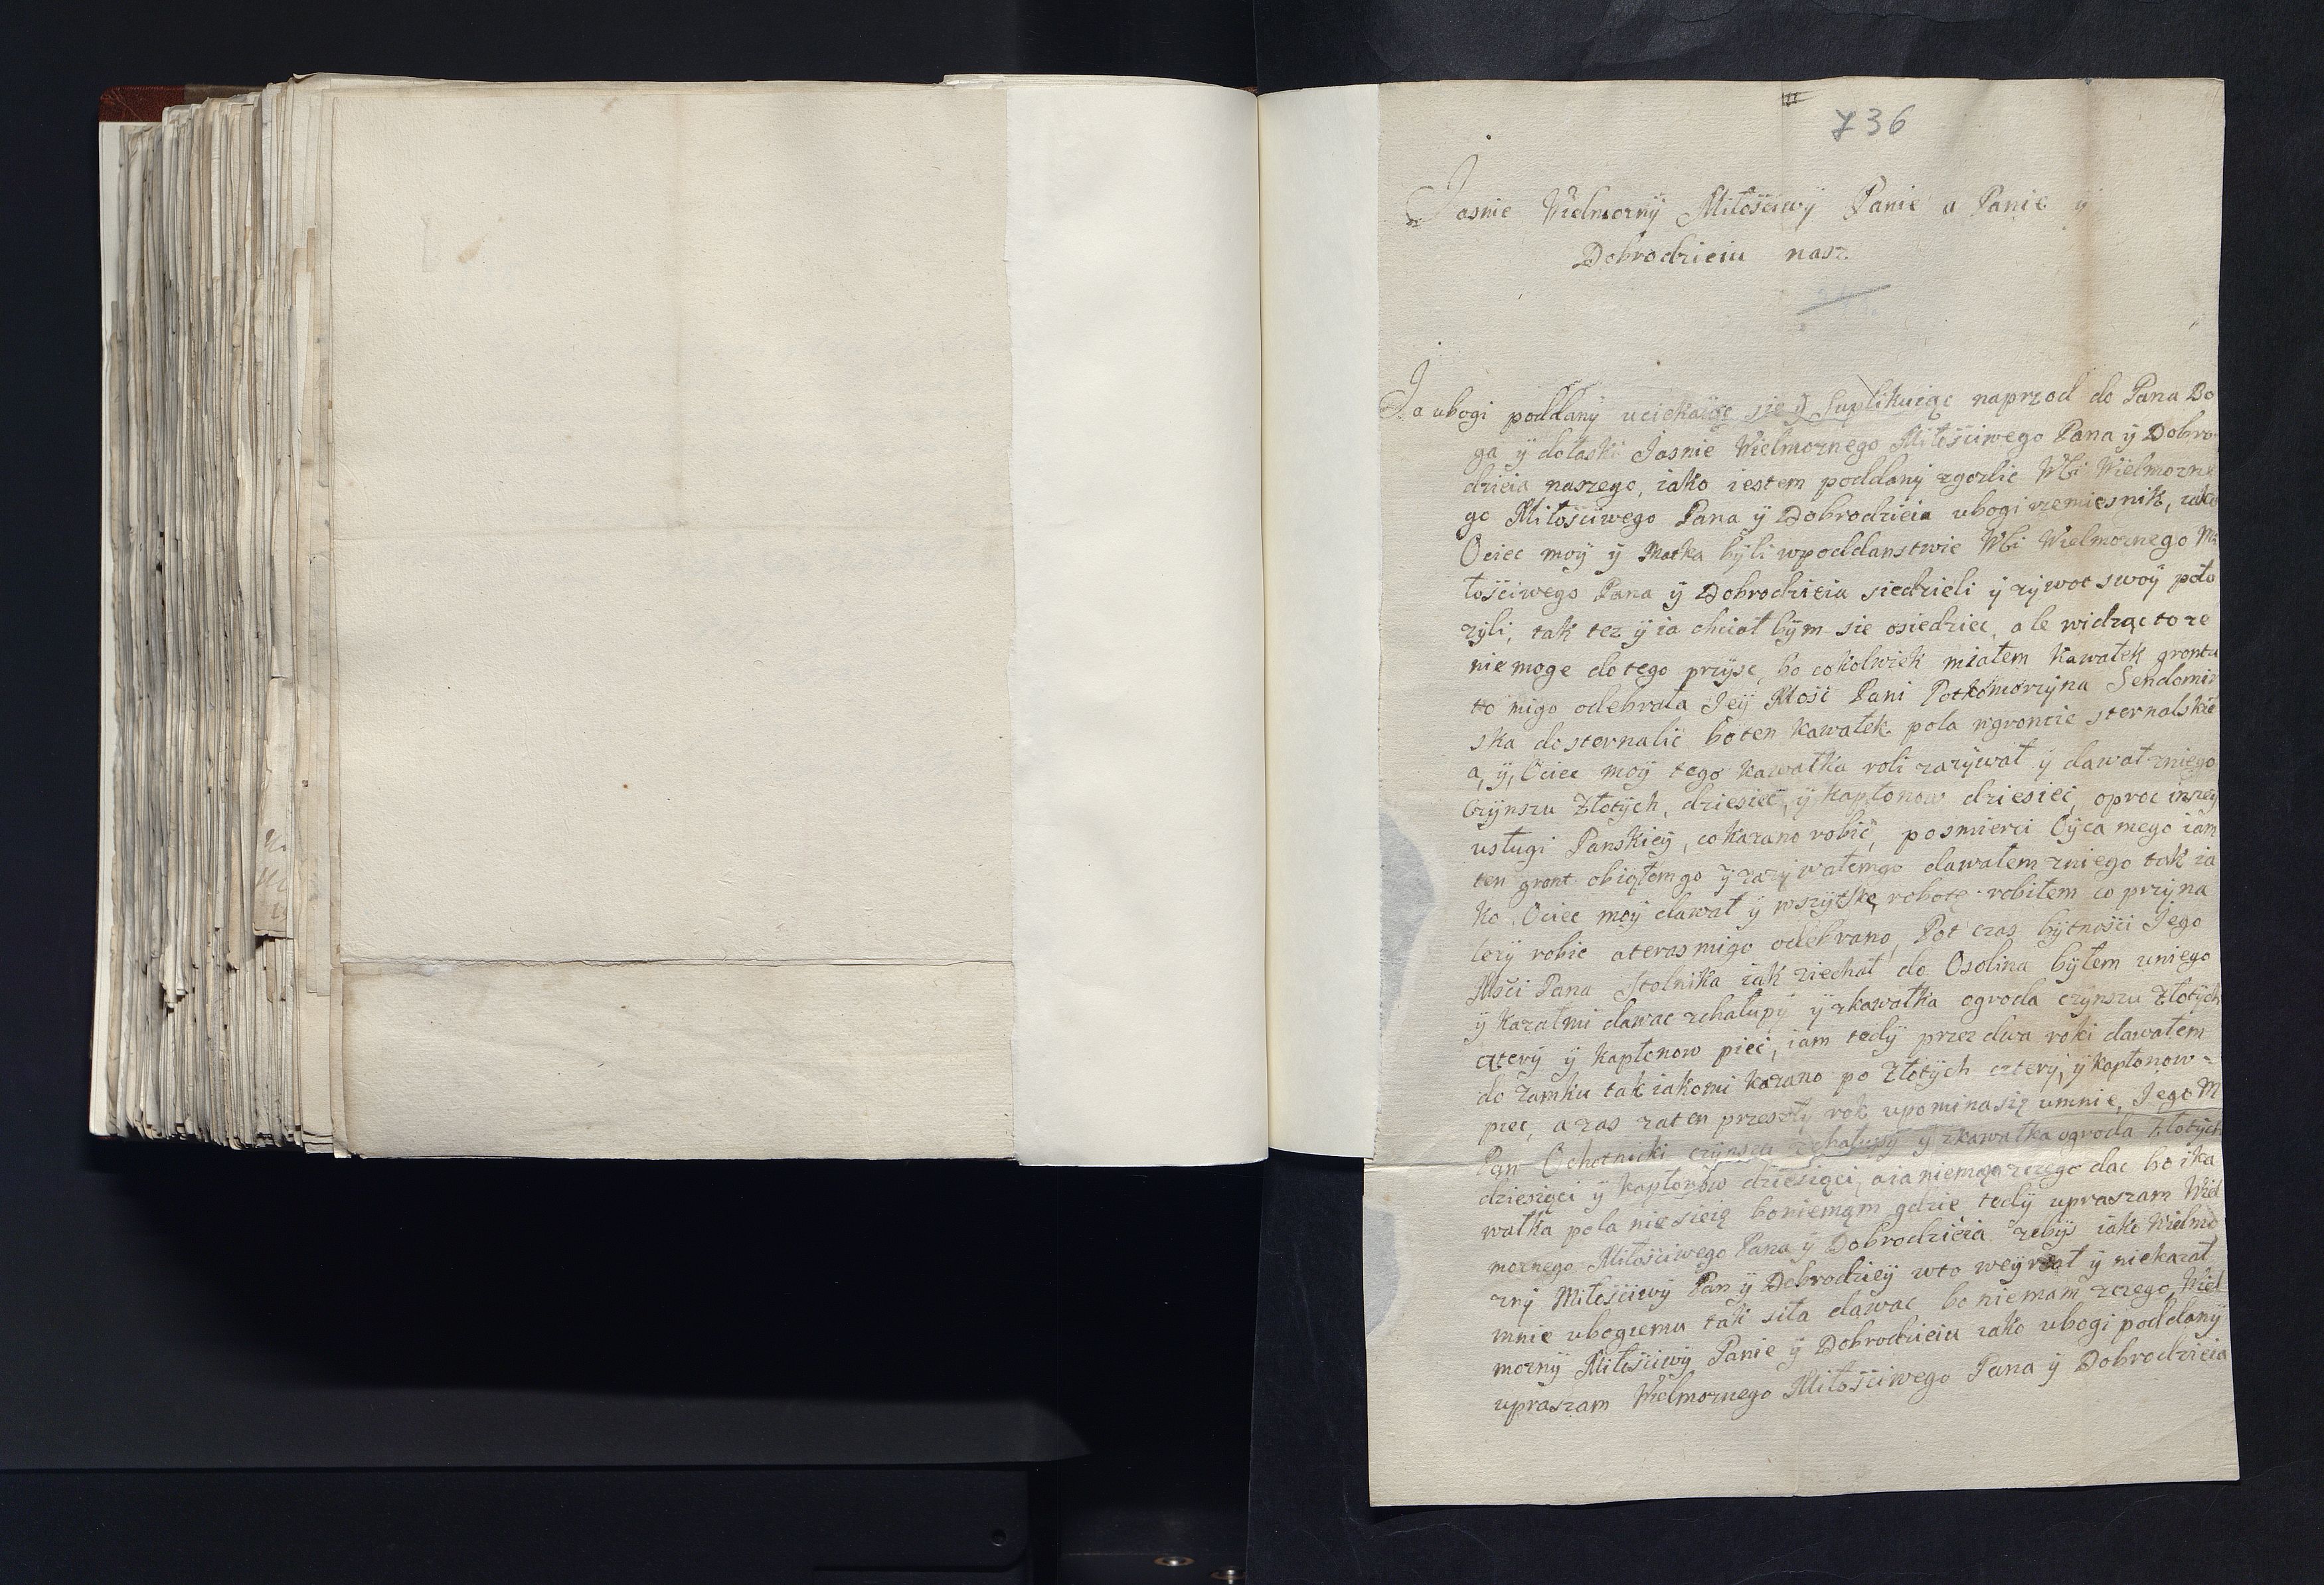 736
Jasnie Wielmozny Miłosciwy Panie a Panie ÿ
Dobrodzieiu nasz.
Ja ubogi poddany uciekaiąc sie ÿ Suplikuiąc naprzod do Pana Bo
ga ÿ dołaski Jasnie Wielmoznego Miłosciwego Pana ÿ Dobro
dzieia naszego, iako iestem poddany zgorlic Wielmozne
go Miłosciwego Pana ÿ Dobrodzieia ubogi rzemiesnik, iako
Ociec moÿ ÿ Matka bÿli wpoddanstwie Wielmoznego Mi
łosciwego Pana ÿ Dobrodzieia siedzieli ÿ zÿwot swoÿ poło
zÿli, tak tez ÿ ia chciał bÿm sie osiedziec, ale widząc to ze
nie moge do tego przÿsc, bo cokolwiek miałem kawałek grontu
to migo odebrała Jeÿ Mosc Pani Potkomorzÿna Sendomir
ska do sternalic bo ten kawałek pola wgroncie sternalskie
a, ÿ, Ociec moÿ tego kawałka roli zazÿwał ÿ dawał zniego
Czÿnszu Złotÿch, dziesiec, ÿ kapłonow dziesiec, oproc inszeÿ
usługi Panskieÿ, co kazano robic, posmierci Oÿca mego iam
ten gront obiąłemgo ÿ zazÿwałemgo dawałem zniego tak ia
ko Ociec moÿ dawał ÿ wszÿtkę robotę robiłem co przÿna
lezÿ robic a teras migo odebrano, Pot czas bÿtnosci Jego
Msci Pana Stolnika iak ziechał do Osolina bÿłem uniego
ÿ kazał mi dawac zchałupÿ ÿ zkawałka ogroda czÿnszu Złotÿch
czterÿ ÿ kapłonow piec, iam tedÿ przez dwa roki dawałem
do zamku tak iakomi kazano po Złotÿch czterÿ, ÿ kapłonow
piec, a zas zaten przeszłÿ rok upomina się umnie, Jego M
Pan Ochotnicki czÿnszu zchałupÿ ÿ zkawałka ogroda Złotÿch
dziesięci ÿ kapłonow dziesięci, a ia niemam zczego dac bo i ka
wałka pola nie sieię bo niemąm gdzie tedÿ upraszam Wiel
moznego Miłosciwego Pana ÿ Dobrodzieia zebÿs iako Wielmo
znÿ Miłosciwÿ Pan ÿ Dobrodzieÿ wto weÿrzał ÿ niekazał
mnie ubogiemu tak siła dawac bo nie mam zczego, Wiel
moznÿ Miłosciwÿ Panie ÿ Dobrodzieiu iako ubogi poddanÿ
upraszam Wielmoznego Miłosciwego Pana ÿ Dobrodzieia